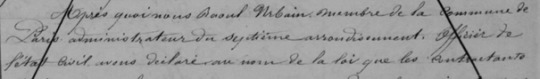 Après quoi nous Raoul Urbain, membre de la Commune de
Paris administrateur du septième arrondissement. Officier de
l'état civil avons déclaré au nom de la loi que les contractants